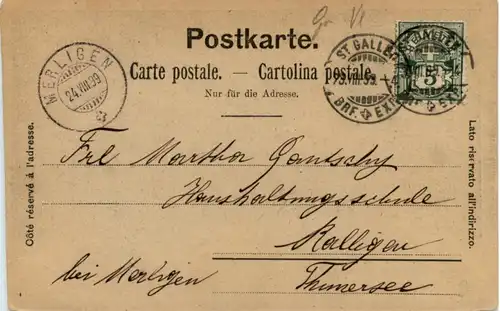 Postkarte.
Carte postale. — Cartolina postale.
Nur für die Adresse.
MERLIGEN
24.VIII.99
ST. GALLEN
23.VIII.99.
BRF. EXP.
5
Côté réservé à l'adresse.
Lato riservato all'indirizzo.
Frl Martha Gantschy
Haushaltungsschule
Ralligen
bei Merligen Thunersee